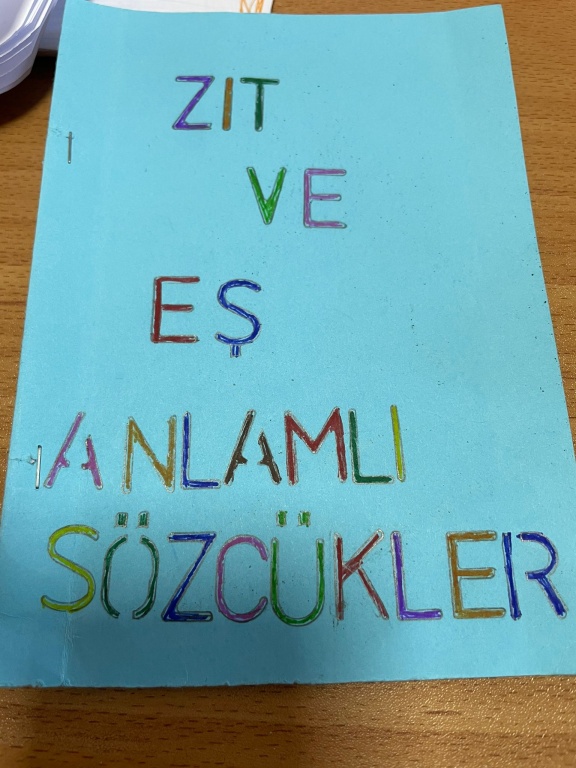 ZIT
VE
EŞ
ANLAMLI
SÖZCÜKLER